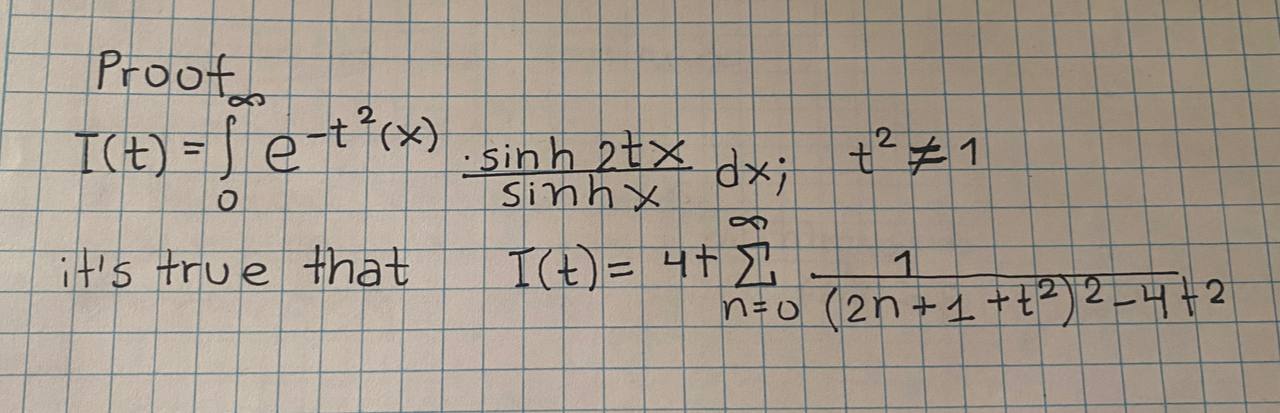 Proof
I(t) = ∫₀^∞ e^{-t²(x)} · \frac{sinh 2tx}{sinh x} dx; t² ≠ 1
it's true that I(t) = 4t ∑_{n=0}^{∞} \frac{1}{(2n+1+t²)²-4t²}